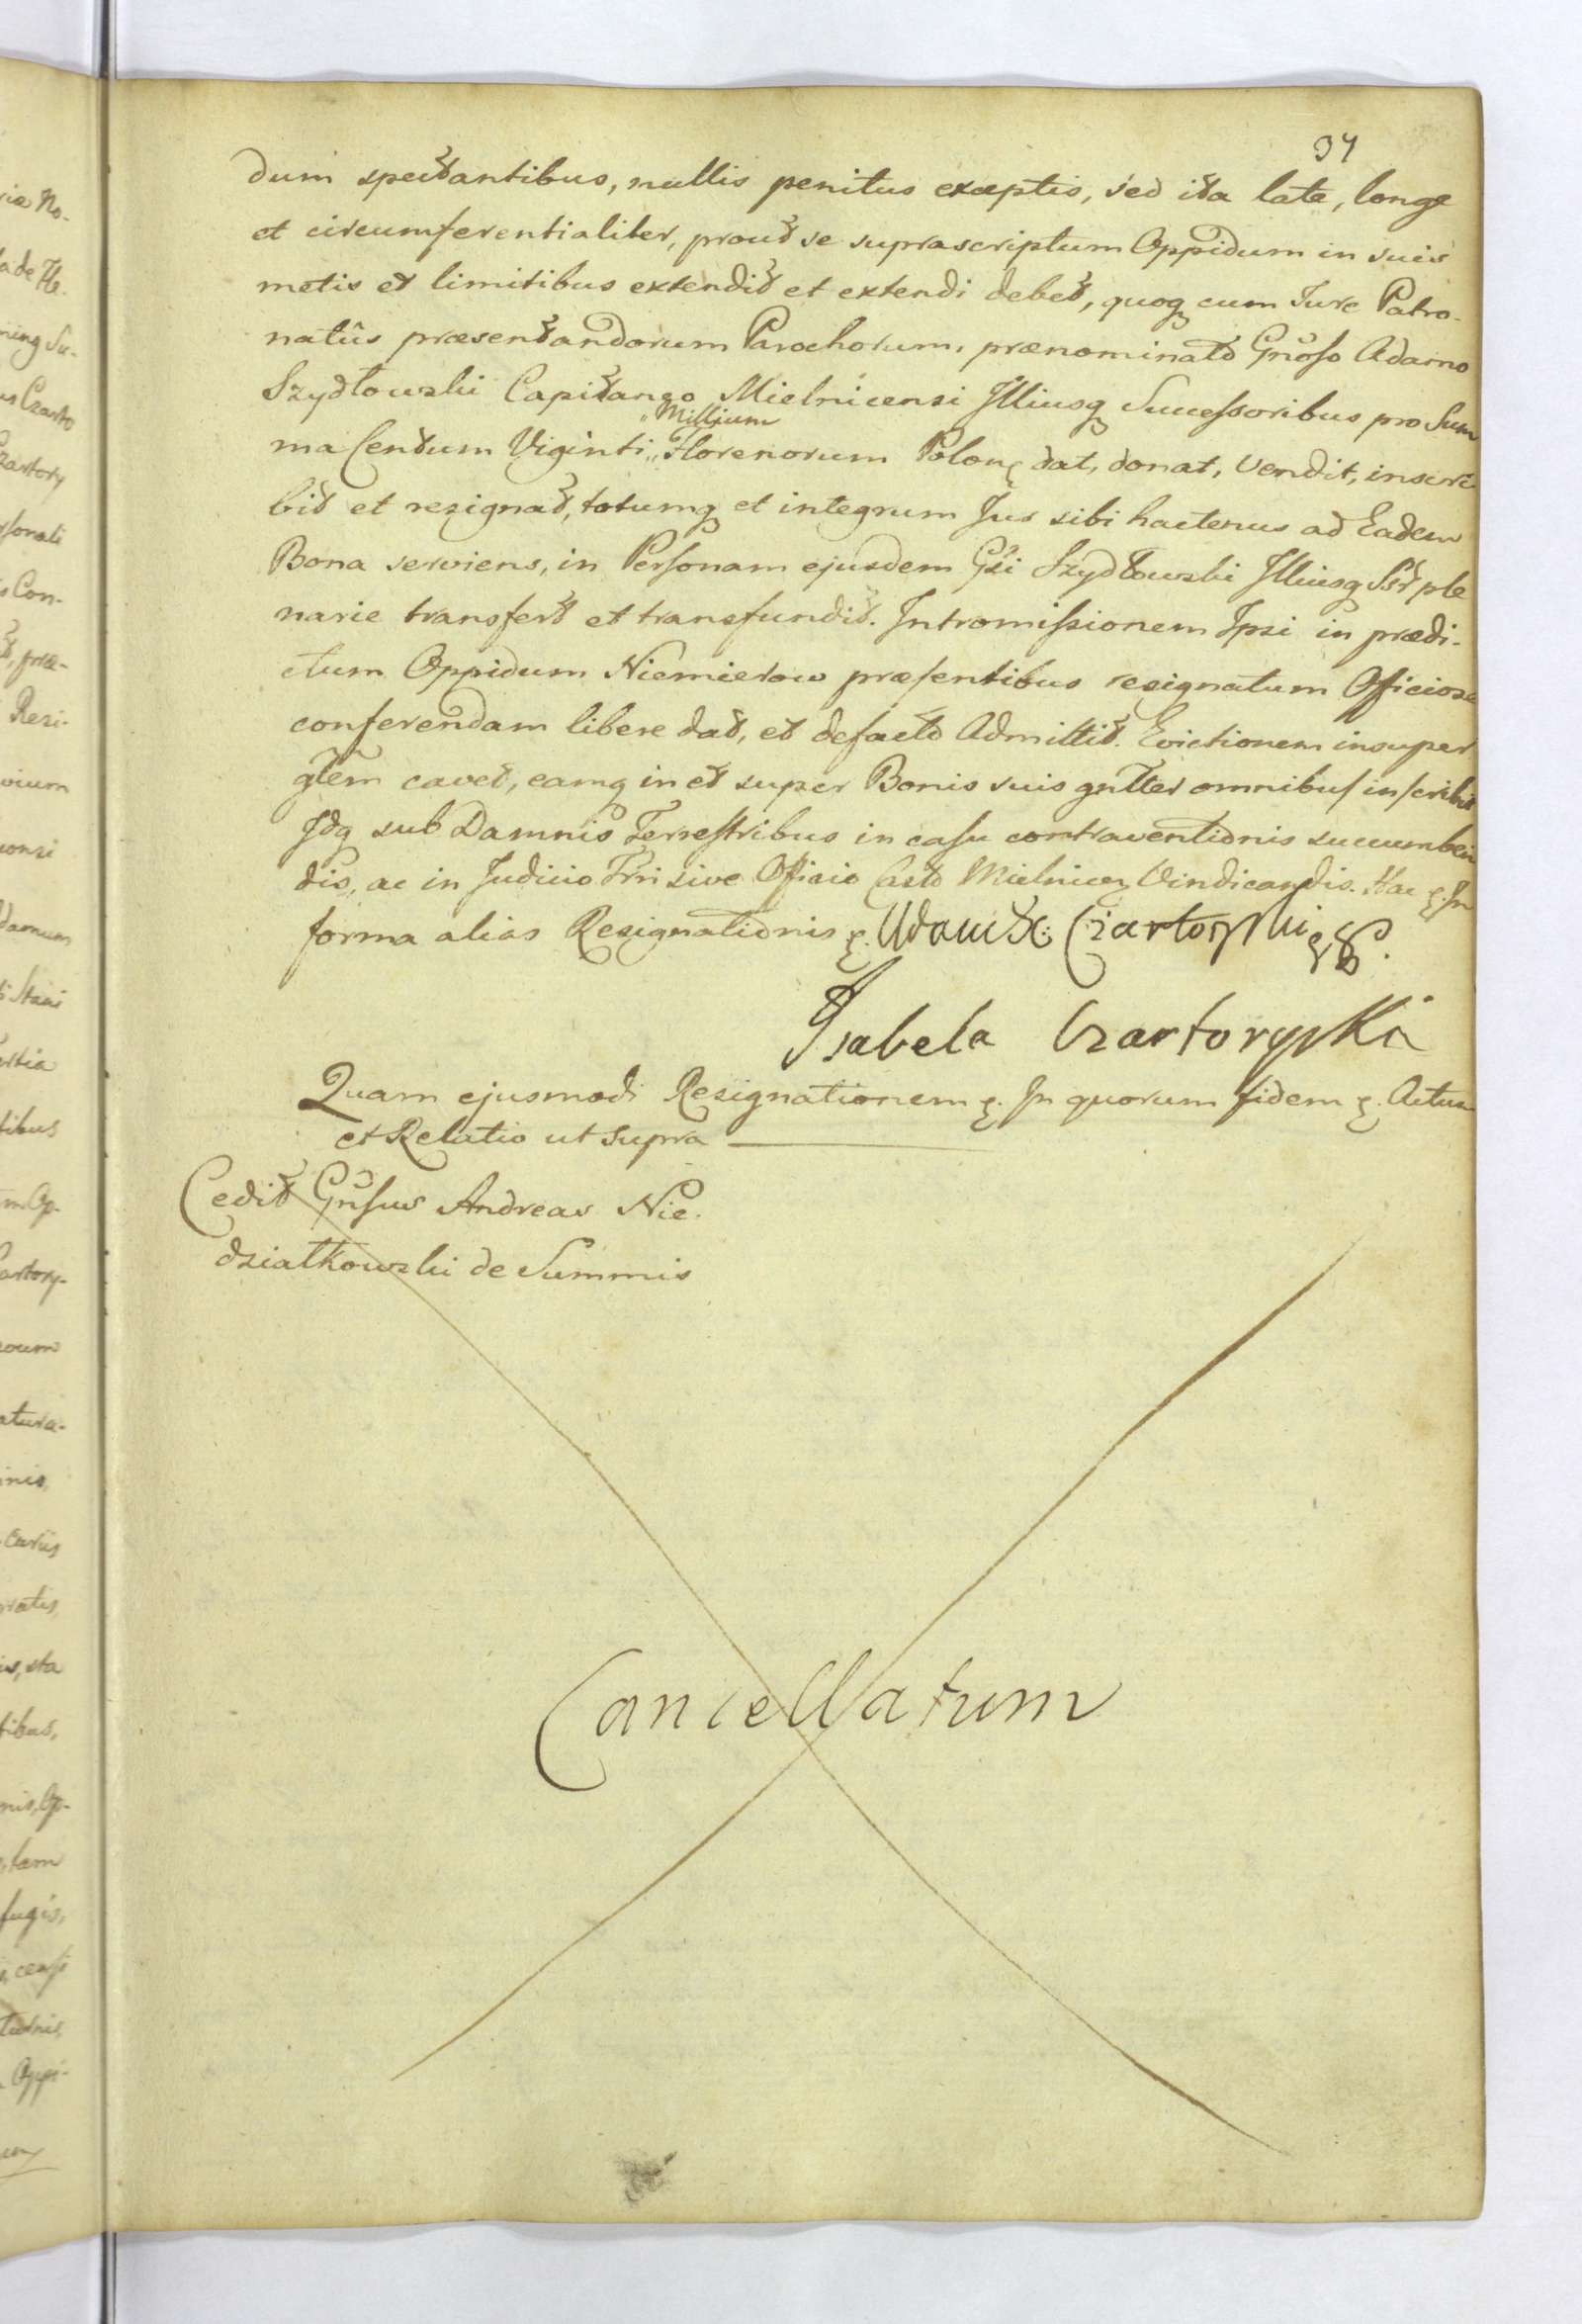 37
dum spectantibus, nullis penitus exceptis, sed ita late, longe
et circumferentialiter, prout se suprascriptum Oppidum in suis
metis et limitibus extendit et extendi debet, quoq cum Jure Patro-
natûs præsentandorum Parochorum, prænominato Gnoso Adamo
Szydłowski Capitaneo Mielnicensi Illiusq Successoribus pro Sum
ma Centum Viginti „ Millium „ Florenorum Polon dat, donat, vendit, inscri
bit et resignat, totumq et integrum Jus sibi hactenus ad Eadem
Bona serviens, in Personam ejusdem Gsi Szydłowski Illiusq Ssr ple
narie transfert et transfundit. Intromissionem Ipsi in prædi-
ctum Oppidum Niemierow præsentibus resignatum Officiose
conferendam libere dat, et defacto Admittit. Evictionem insuper
gtem cavet, eamq in et super Bonis suis gntter omnibus inscribit
Idq sub Damnis Terrestribus in casu contraventionis succumben
dis, ac in Judicio Trri sive Officio Casto Mielnicen Vindicandis. Hac
forma alias Resignationis Adam X: Czartoryski
Isabela Czartoryska
Quam ejusmodi Resignationem. In quorum fidem. Actum
et Relatio ut supra
Cedit Gnsus Andreas Nie-
działkowski de Summis
Cancellatum